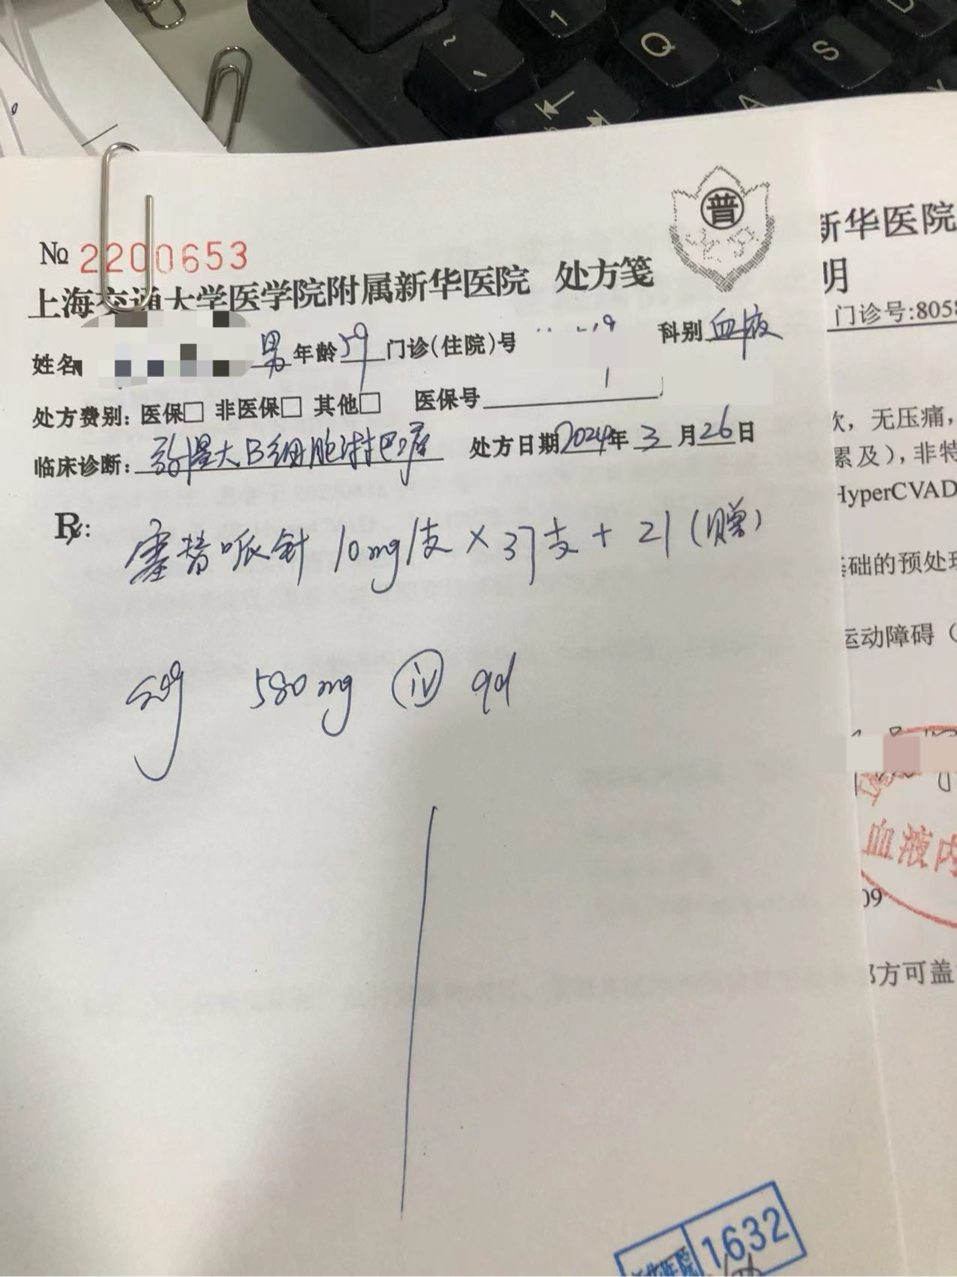 ~
1
Q
A
S
普
№ 2200653
上海交通大学医学院附属新华医院 处方笺
姓名 男 年龄 59 门诊(住院)号 科别 血液
处方费别: 医保□ 非医保□ 其他□ 医保号
临床诊断: 弥漫大B细胞淋巴瘤 处方日期 2024年 3 月 26 日
R:
塞替哌针 10mg/支 × 37支 + 21(赠)
sig 580mg iv qd
1632
新华医院
明
门诊号:8058
欠，无压痛，
累及），非特
HyperCVAD
基础的预处理
运动障碍（
血液内
09
部方可盖